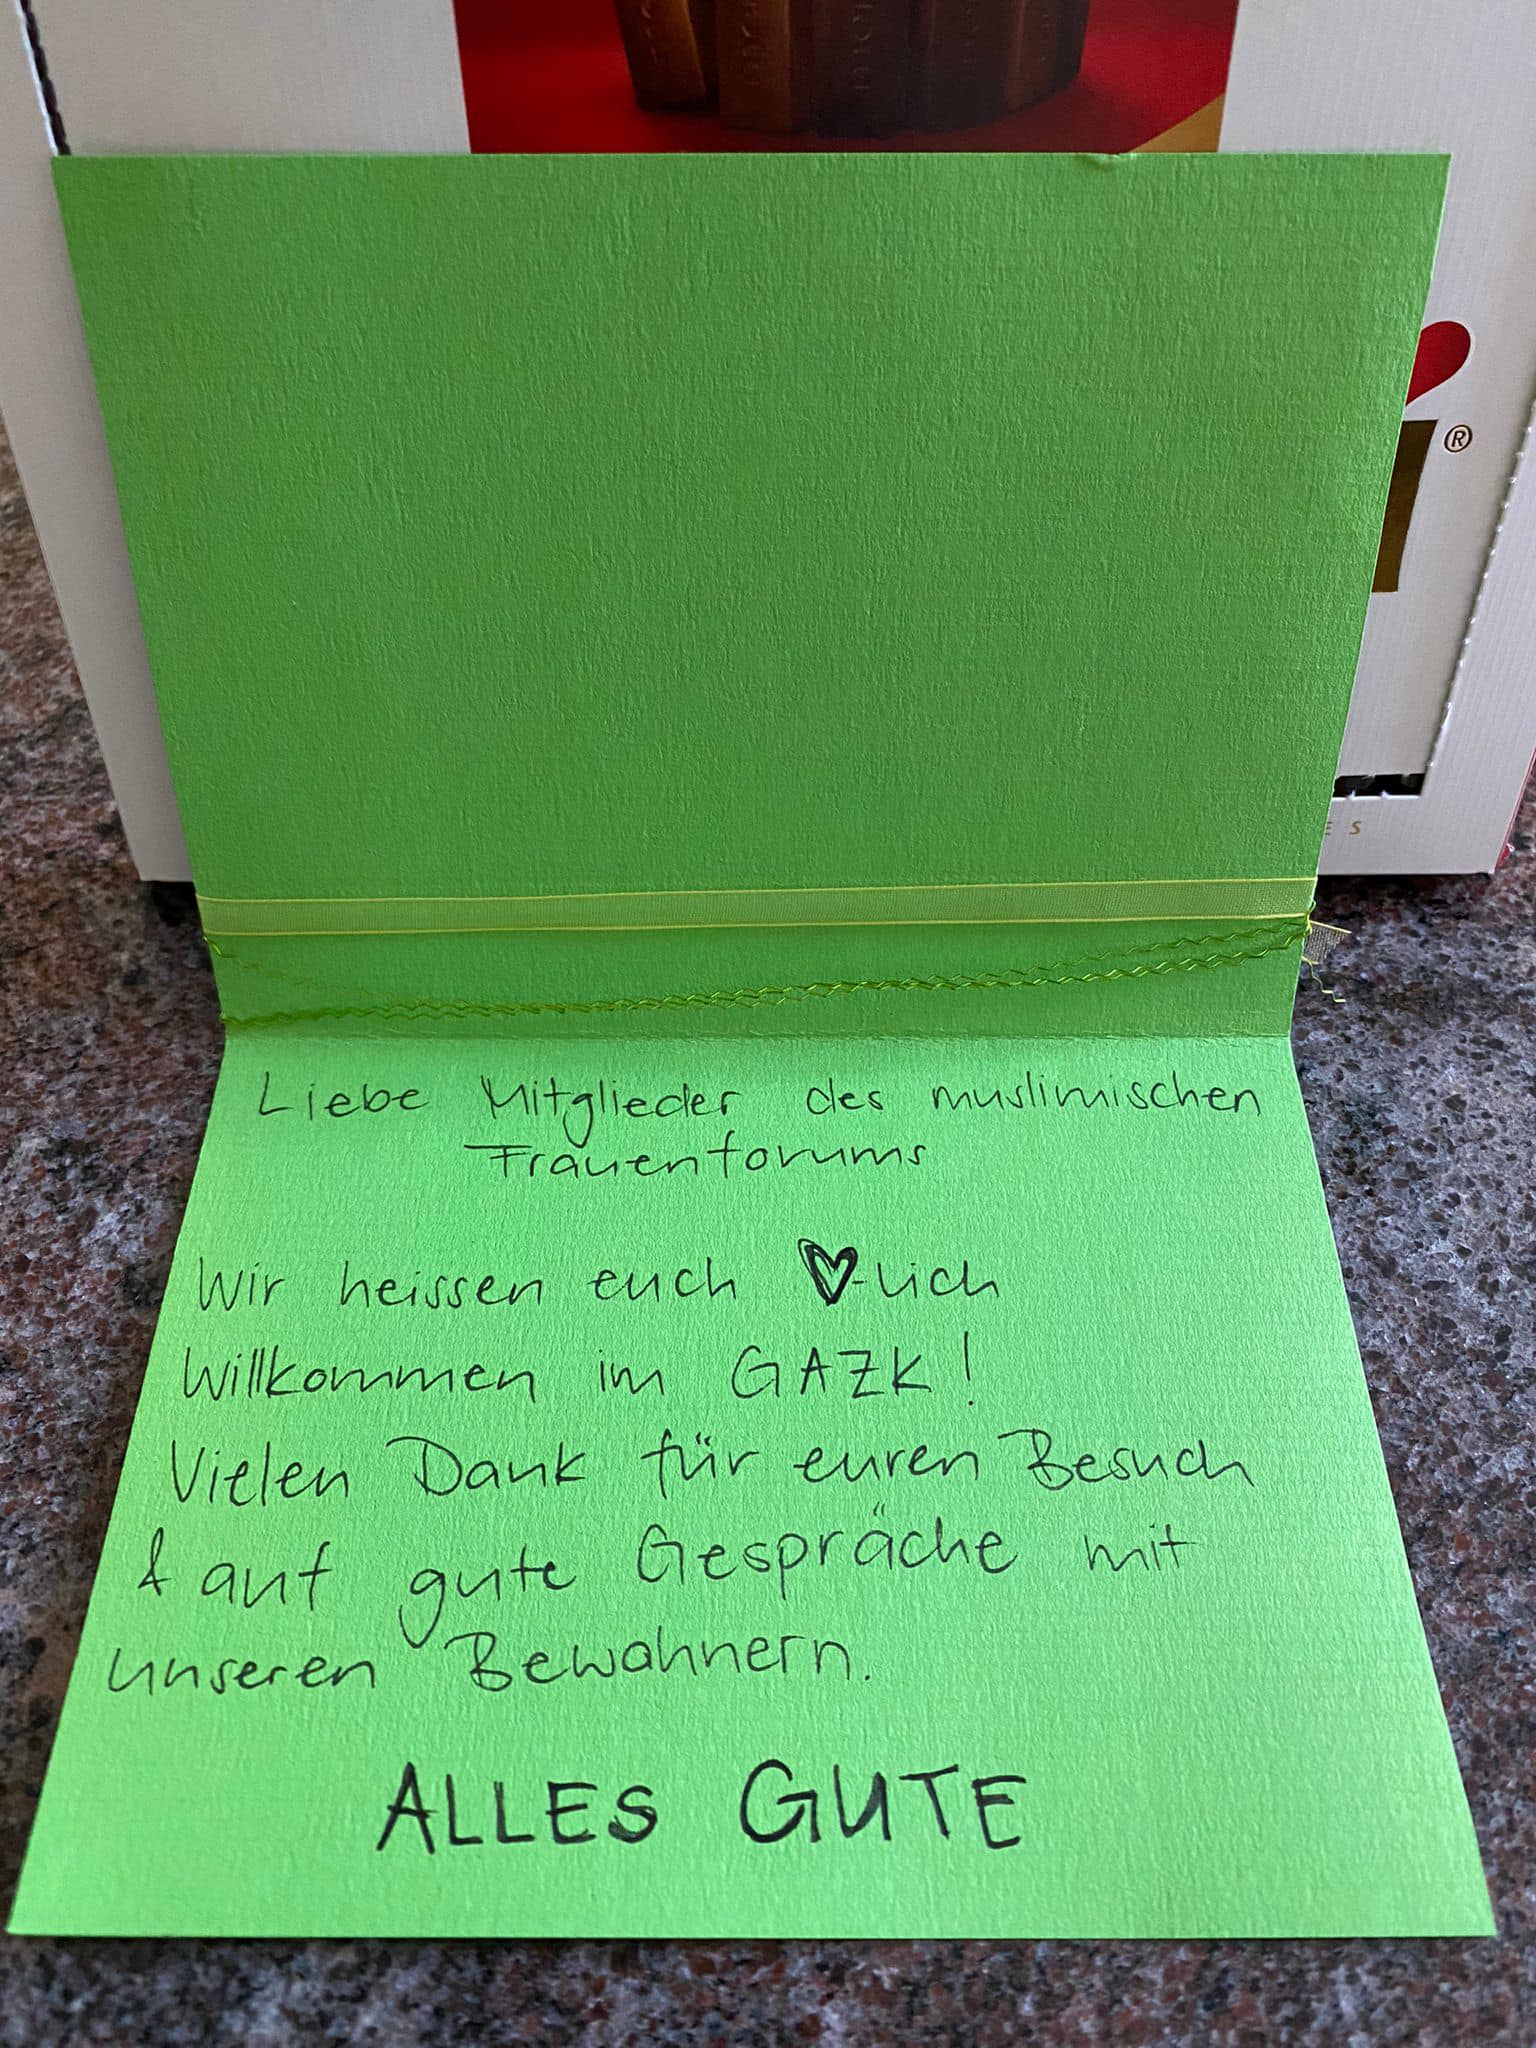 ®
E S
Liebe Mitglieder des muslimischen
Frauenforums
Wir heissen euch ♥-lich
Willkommen im GAZK!
Vielen Dank für euren Besuch
& auf gute Gespräche mit
unseren Bewohnern.
ALLES GUTE